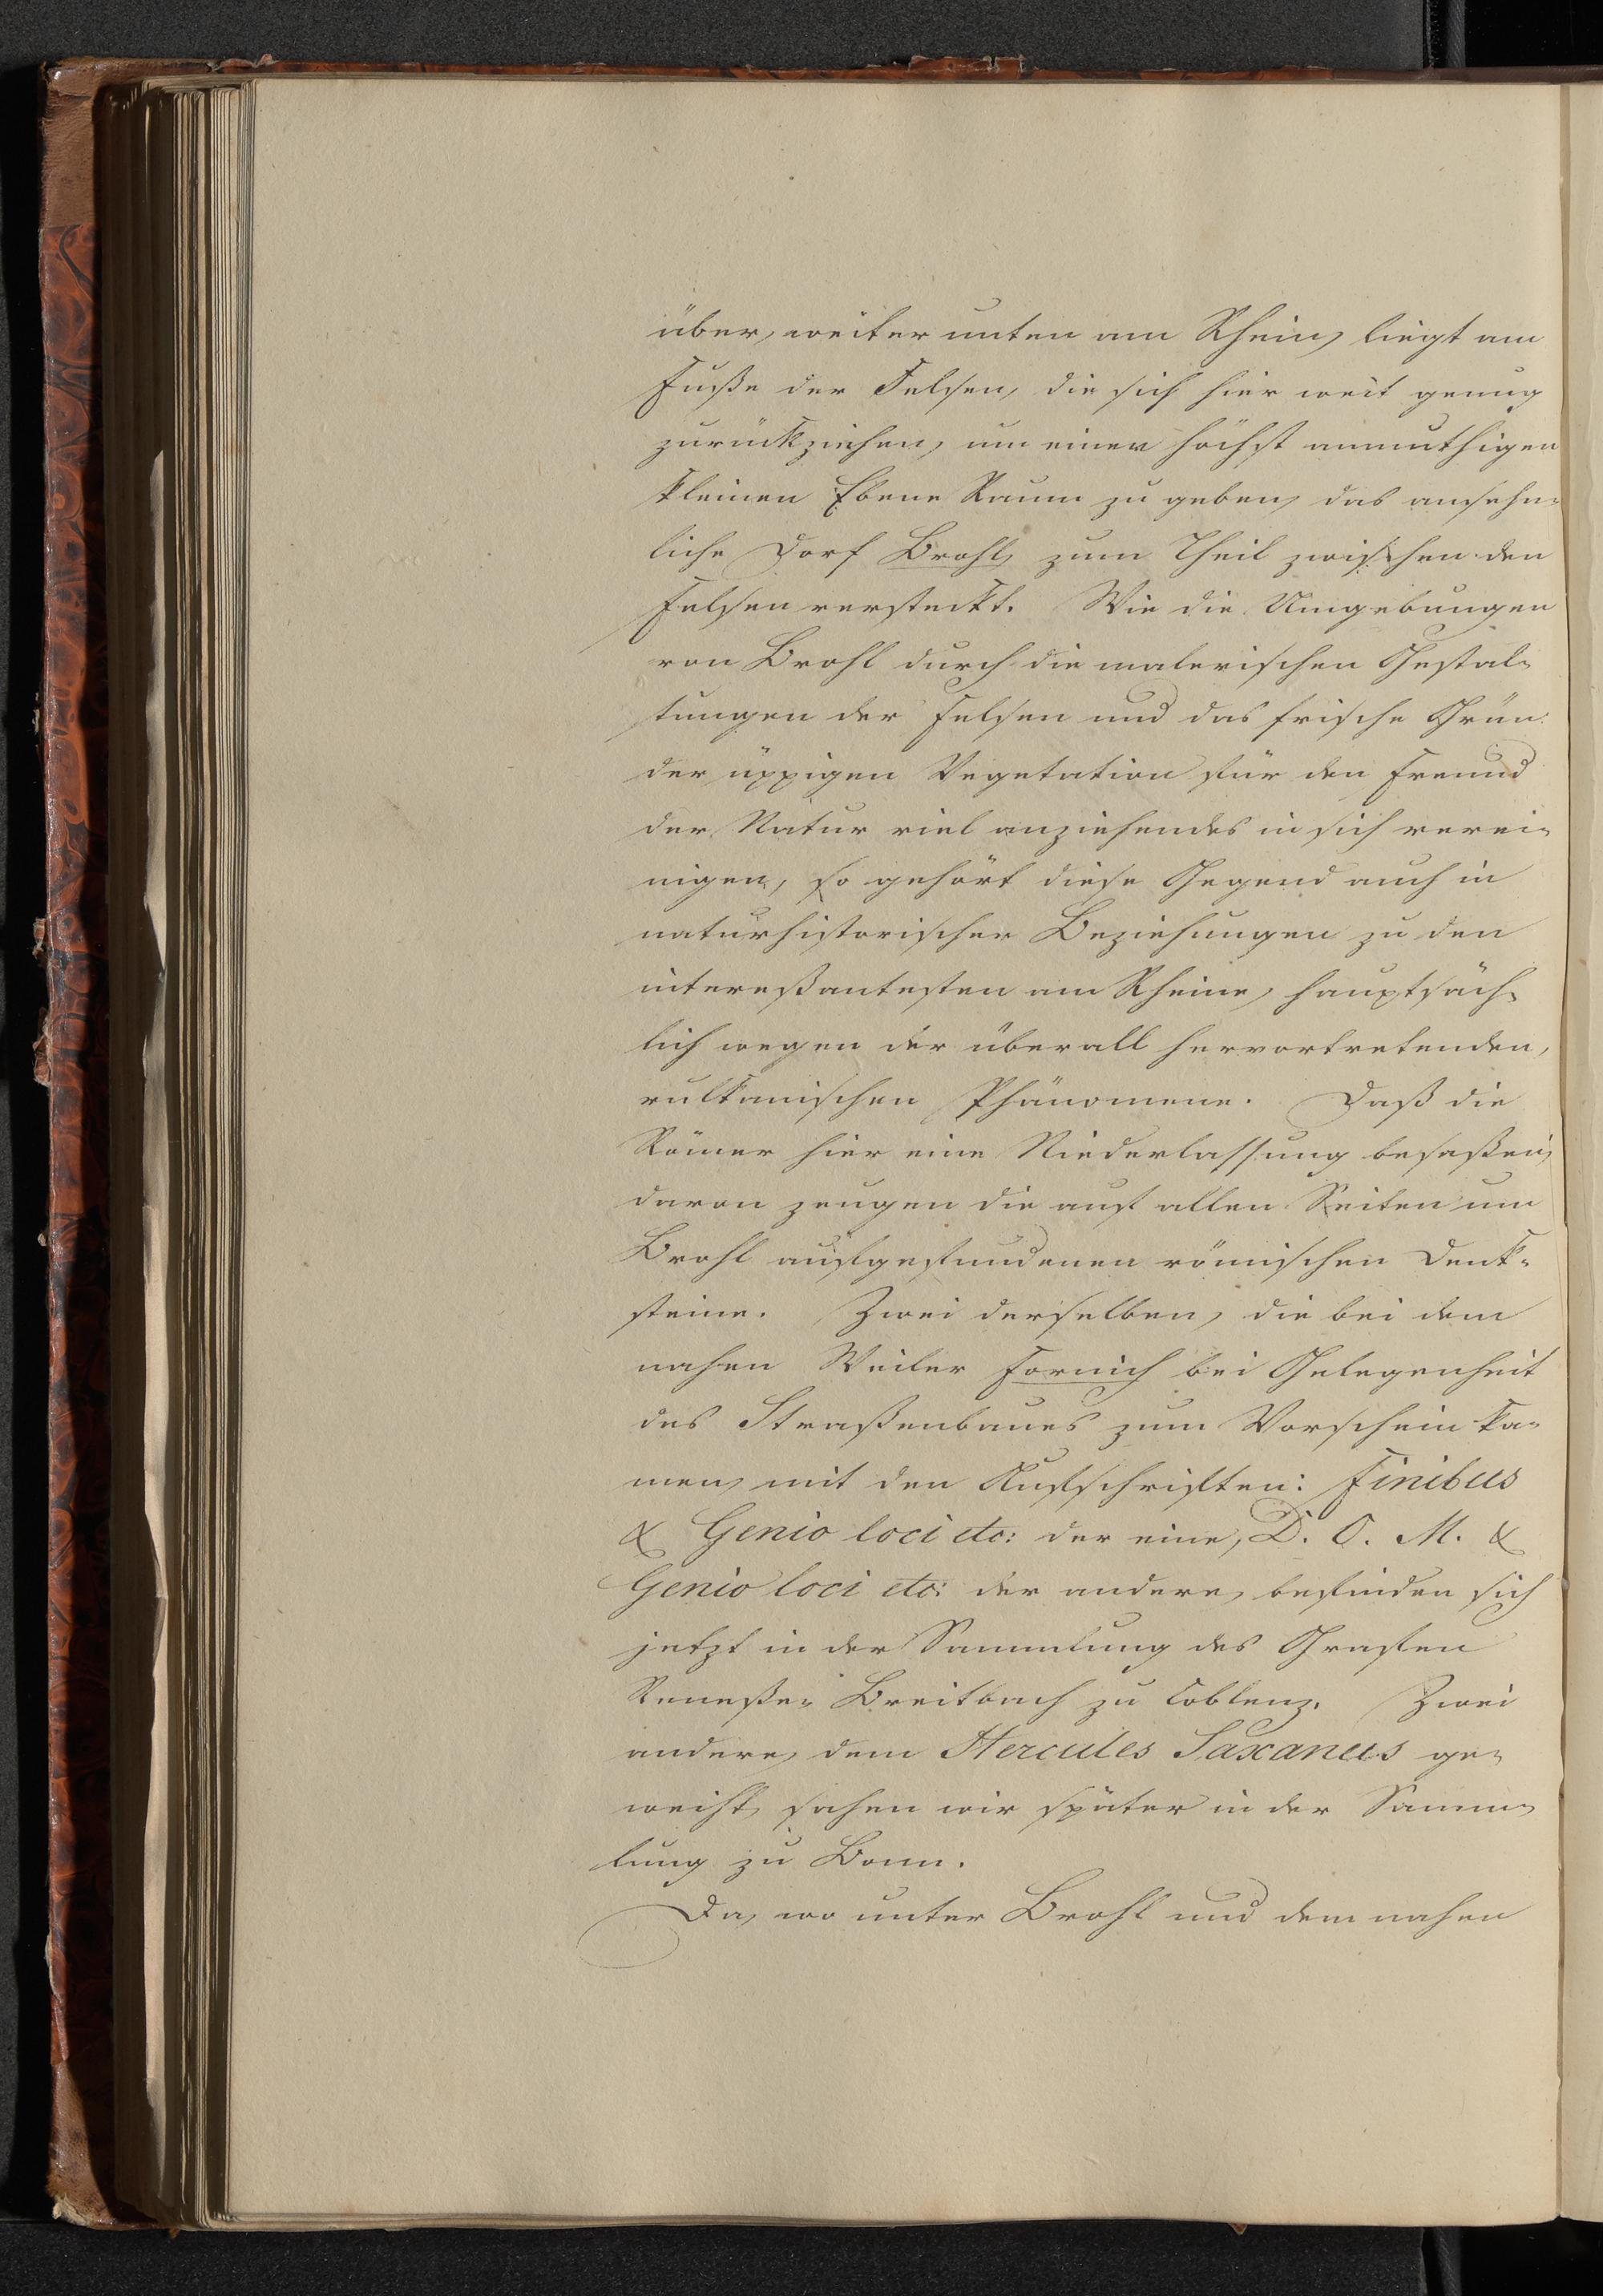 über, weiter unten am Rhein, liegt am
Fuße der Felsen, die sich hier weit genug
zurückziehen, um einer höchst anmuthigen
kleinen Ebene Raum zu geben, das ansehn-
liche Dorf Brohl, zum Theil zwischen den
Felsen versteckt. Wie die Umgebungen
von Brohl durch die malerischen Gestal-
tungen der Felsen und das frische Grün
der üppigen Vegetation für den Freund
der Natur viel anziehendes in sich verei-
nigen, so gehört diese Gegend auch in
naturhistorischer Beziehungen zu den
intereßantesten am Rheine, hauptsäch-
lich wegen der überall hervortretenden,
vulkanischen Phänomene. Daß die
Römer hier eine Niederlassung besaßen,
davon zeugen die auf allen Seiten um
Brohl aufgefundenen römischen Denk-
steine. Zwei derselben, die bei dem
nahen Weiler Fornich bei Gelegenheit
des Straßenbaues zum Vorschein ka-
men, mit den Aufschriften: Finibus
& Genio loci etc: der eine, D. O. M. &
Genio loci etc: der andere, befinden sich
jetzt in der Sammlung des Grafen
Reneße-Breitbach zu Coblenz. Zwei
andere, dem Hercules Saxanus ge-
weiht, sahen wir später in der Samm-
lung zu Bonn.
Da, wo unter Brohl und dem nahen